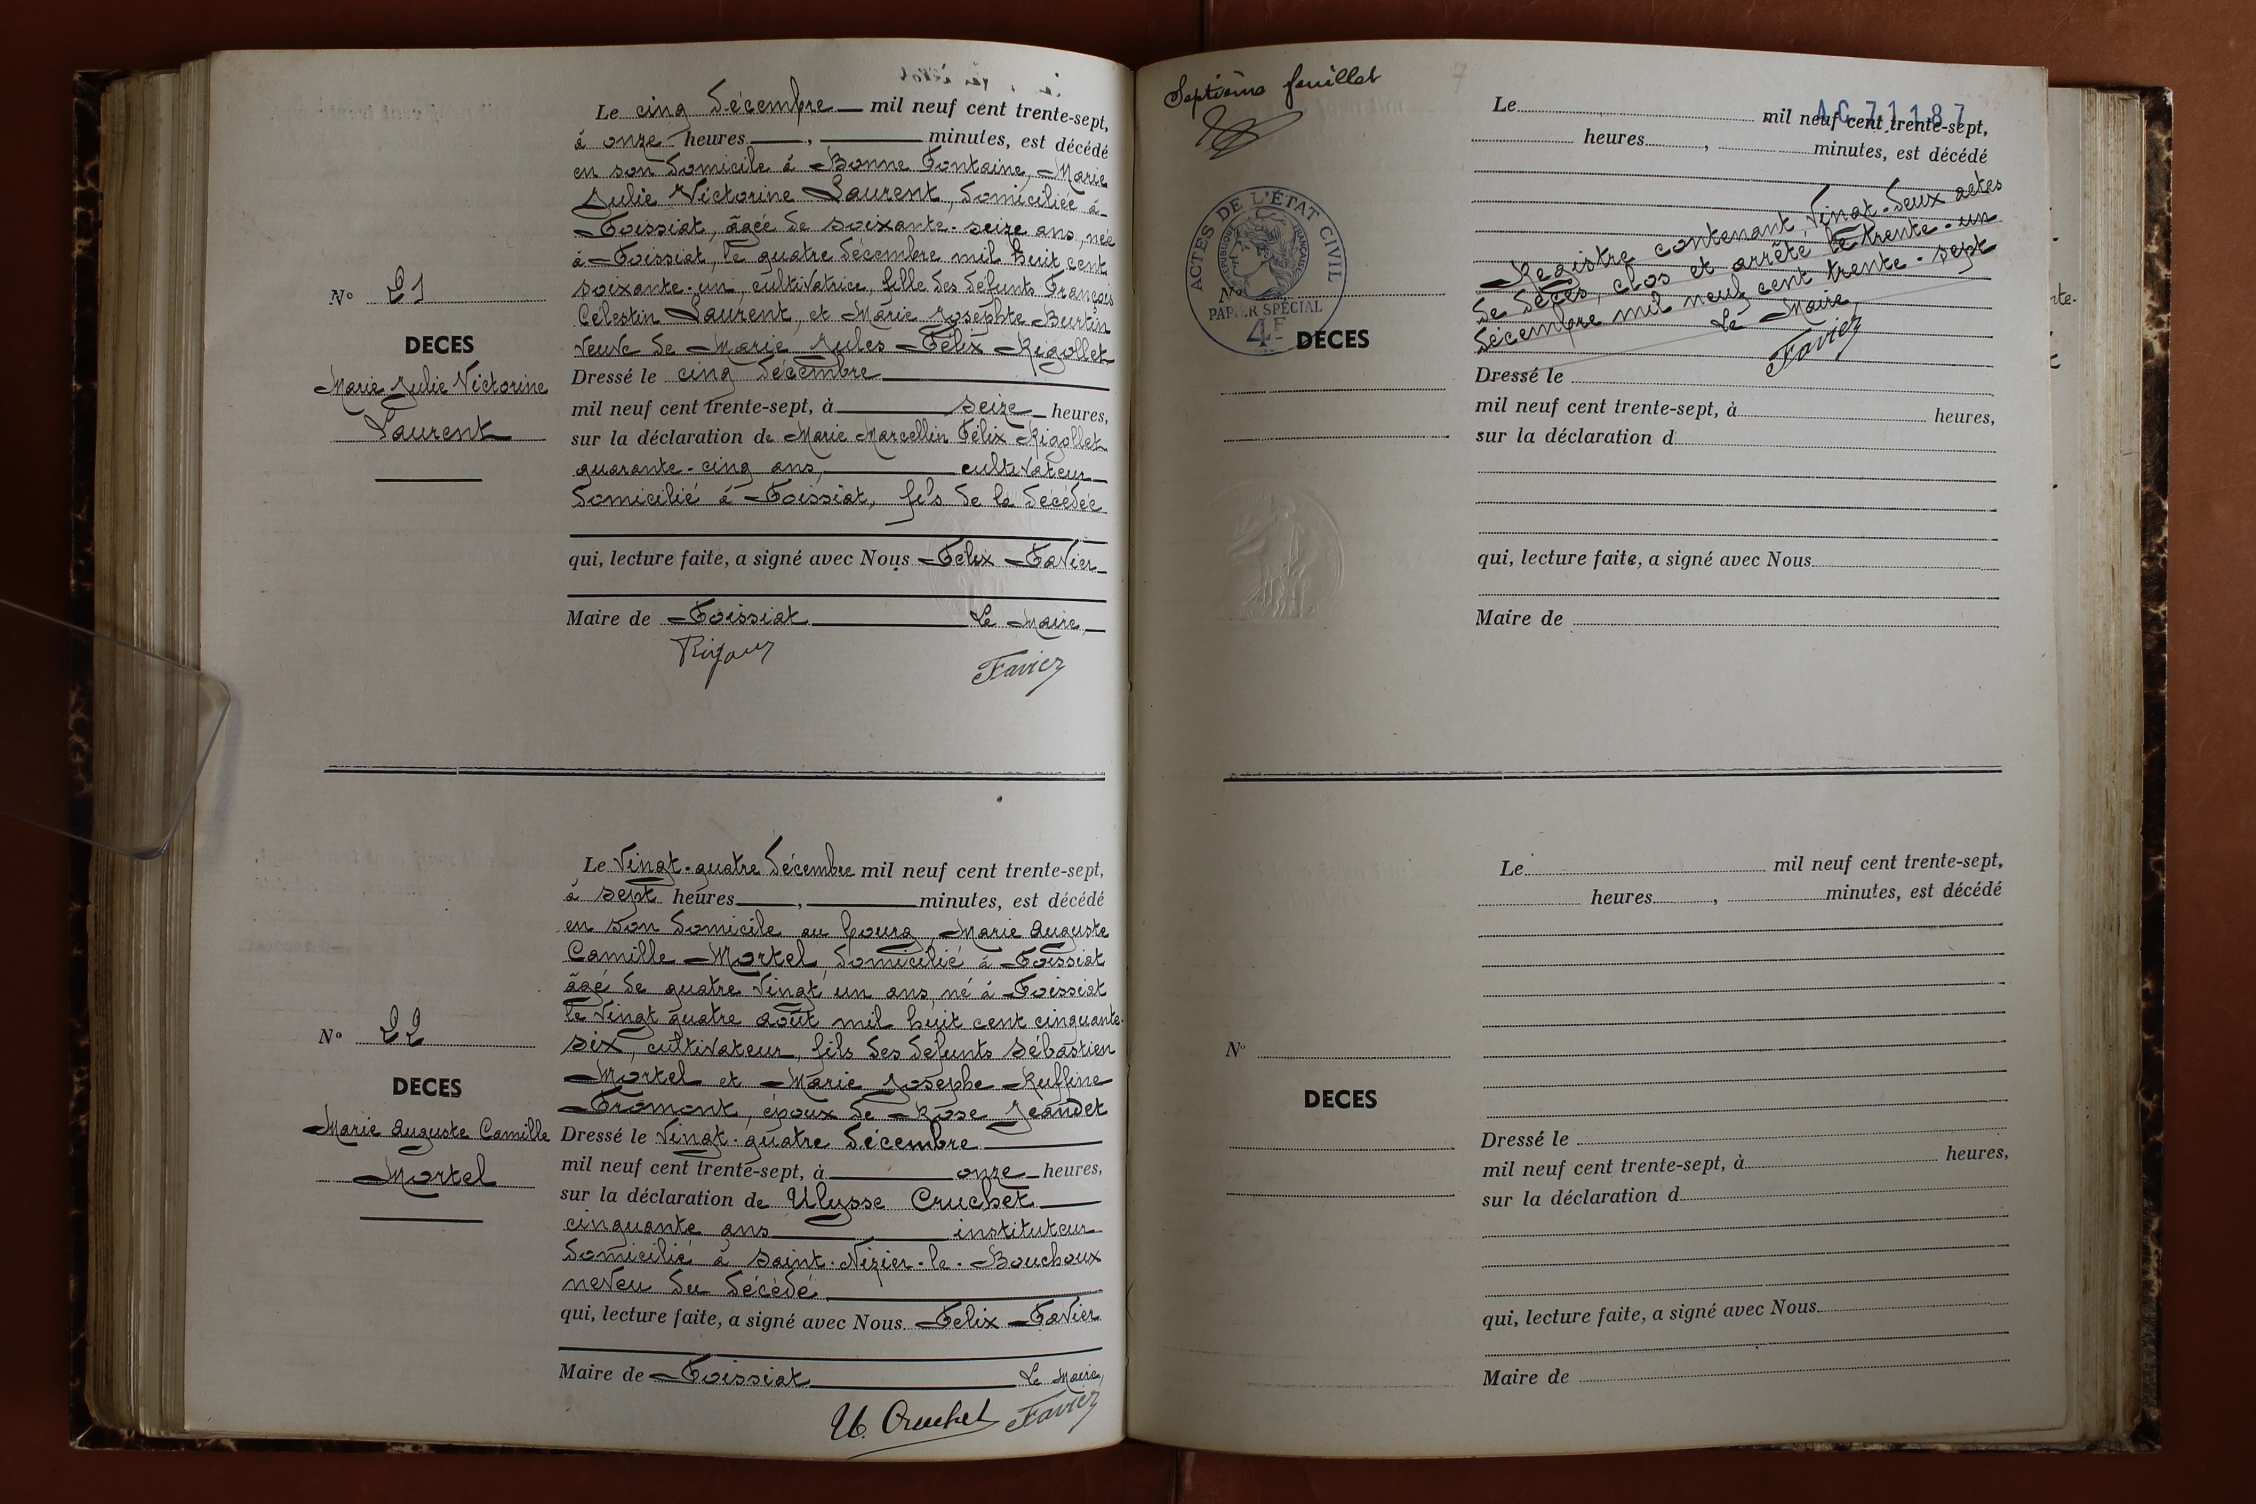 Le cinq décembre mil neuf cent trente-sept,
à onze heures , minutes, est décédé
en son domicile à Bonne Fontaine, Marie
Julie Victorine Laurent, domiciliée à
Foissiat, âgée de soixante-seize ans, née
à Foissiat, le quatre décembre mil huit cent
soixante-un, cultivatrice, fille des défunts François
Célestin Laurent, et Marie Josephte Burtin
veuve de Marie Jules Félix Rigollet
Nº 21
DECES
Marie Julie Victorine
Laurent
Dressé le cinq décembre
mil neuf cent trente-sept, à seize heures,
sur la déclaration de Marie Marcellin Félix Rigollet
quarante-cinq ans, cultivateur
domicilié à Foissiat, fils de la décédée
qui, lecture faite, a signé avec Nous Félix Favier
Maire de Foissiat Le Maire,
Favier
Le vingt-quatre décembre mil neuf cent trente-sept,
à sept heures , minutes, est décédé
en son domicile au bourg, Marie Auguste
Camille Mortel, domicilié à Foissiat
âgé de quatre vingt un ans, né à Foissiat
le vingt quatre août mil huit cent cinquante-
six, cultivateur, fils des défunts Sébastien
Mortel et Marie Josephe Ruffine
Fromont, époux de Rose Jeandet
Nº 22
DECES
Marie Auguste Camille
Mortel
Dressé le vingt-quatre décembre
mil neuf cent trente-sept, à onze heures,
sur la déclaration de Ulysse Cruchet
cinquante ans instituteur
domicilié à Saint-Nizier-le-Bouchoux
neveu du décédé
qui, lecture faite, a signé avec Nous Félix Favier
Maire de Foissiat Le Maire,
U. Cruchet Favier
Septième feuillet
7
AC 71187
Le mil neuf cent trente-sept,
heures , minutes, est décédé
ACTES DE L'ÉTAT CIVIL
RÉPUBLIQUE FRANÇAISE
PAPIER SPÉCIAL
4F
Registre contenant vingt-deux actes
de décès, clos et arrêté le trente-un
décembre mil neuf cent trente-sept
Le Maire,
Favier
Nº
DECES
Dressé le
mil neuf cent trente-sept, à heures,
sur la déclaration d
qui, lecture faite, a signé avec Nous
Maire de
Le mil neuf cent trente-sept,
heures , minutes, est décédé
Nº
DECES
Dressé le
mil neuf cent trente-sept, à heures,
sur la déclaration d
qui, lecture faite, a signé avec Nous
Maire de